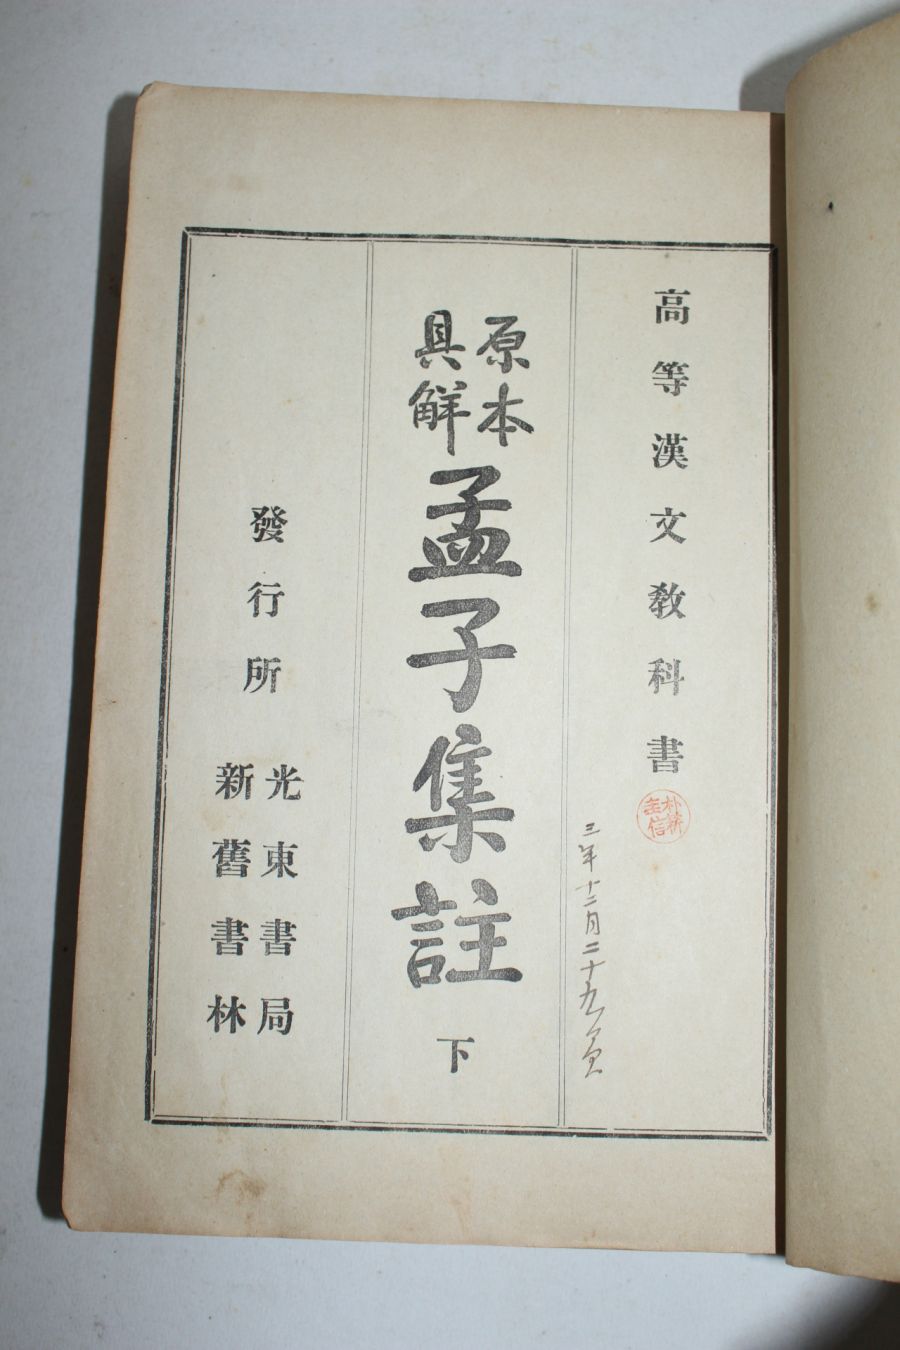 高等漢文教科書
原本
具解
孟子集註
下
三年十二月二十九
發行所
光東書局
新舊書林